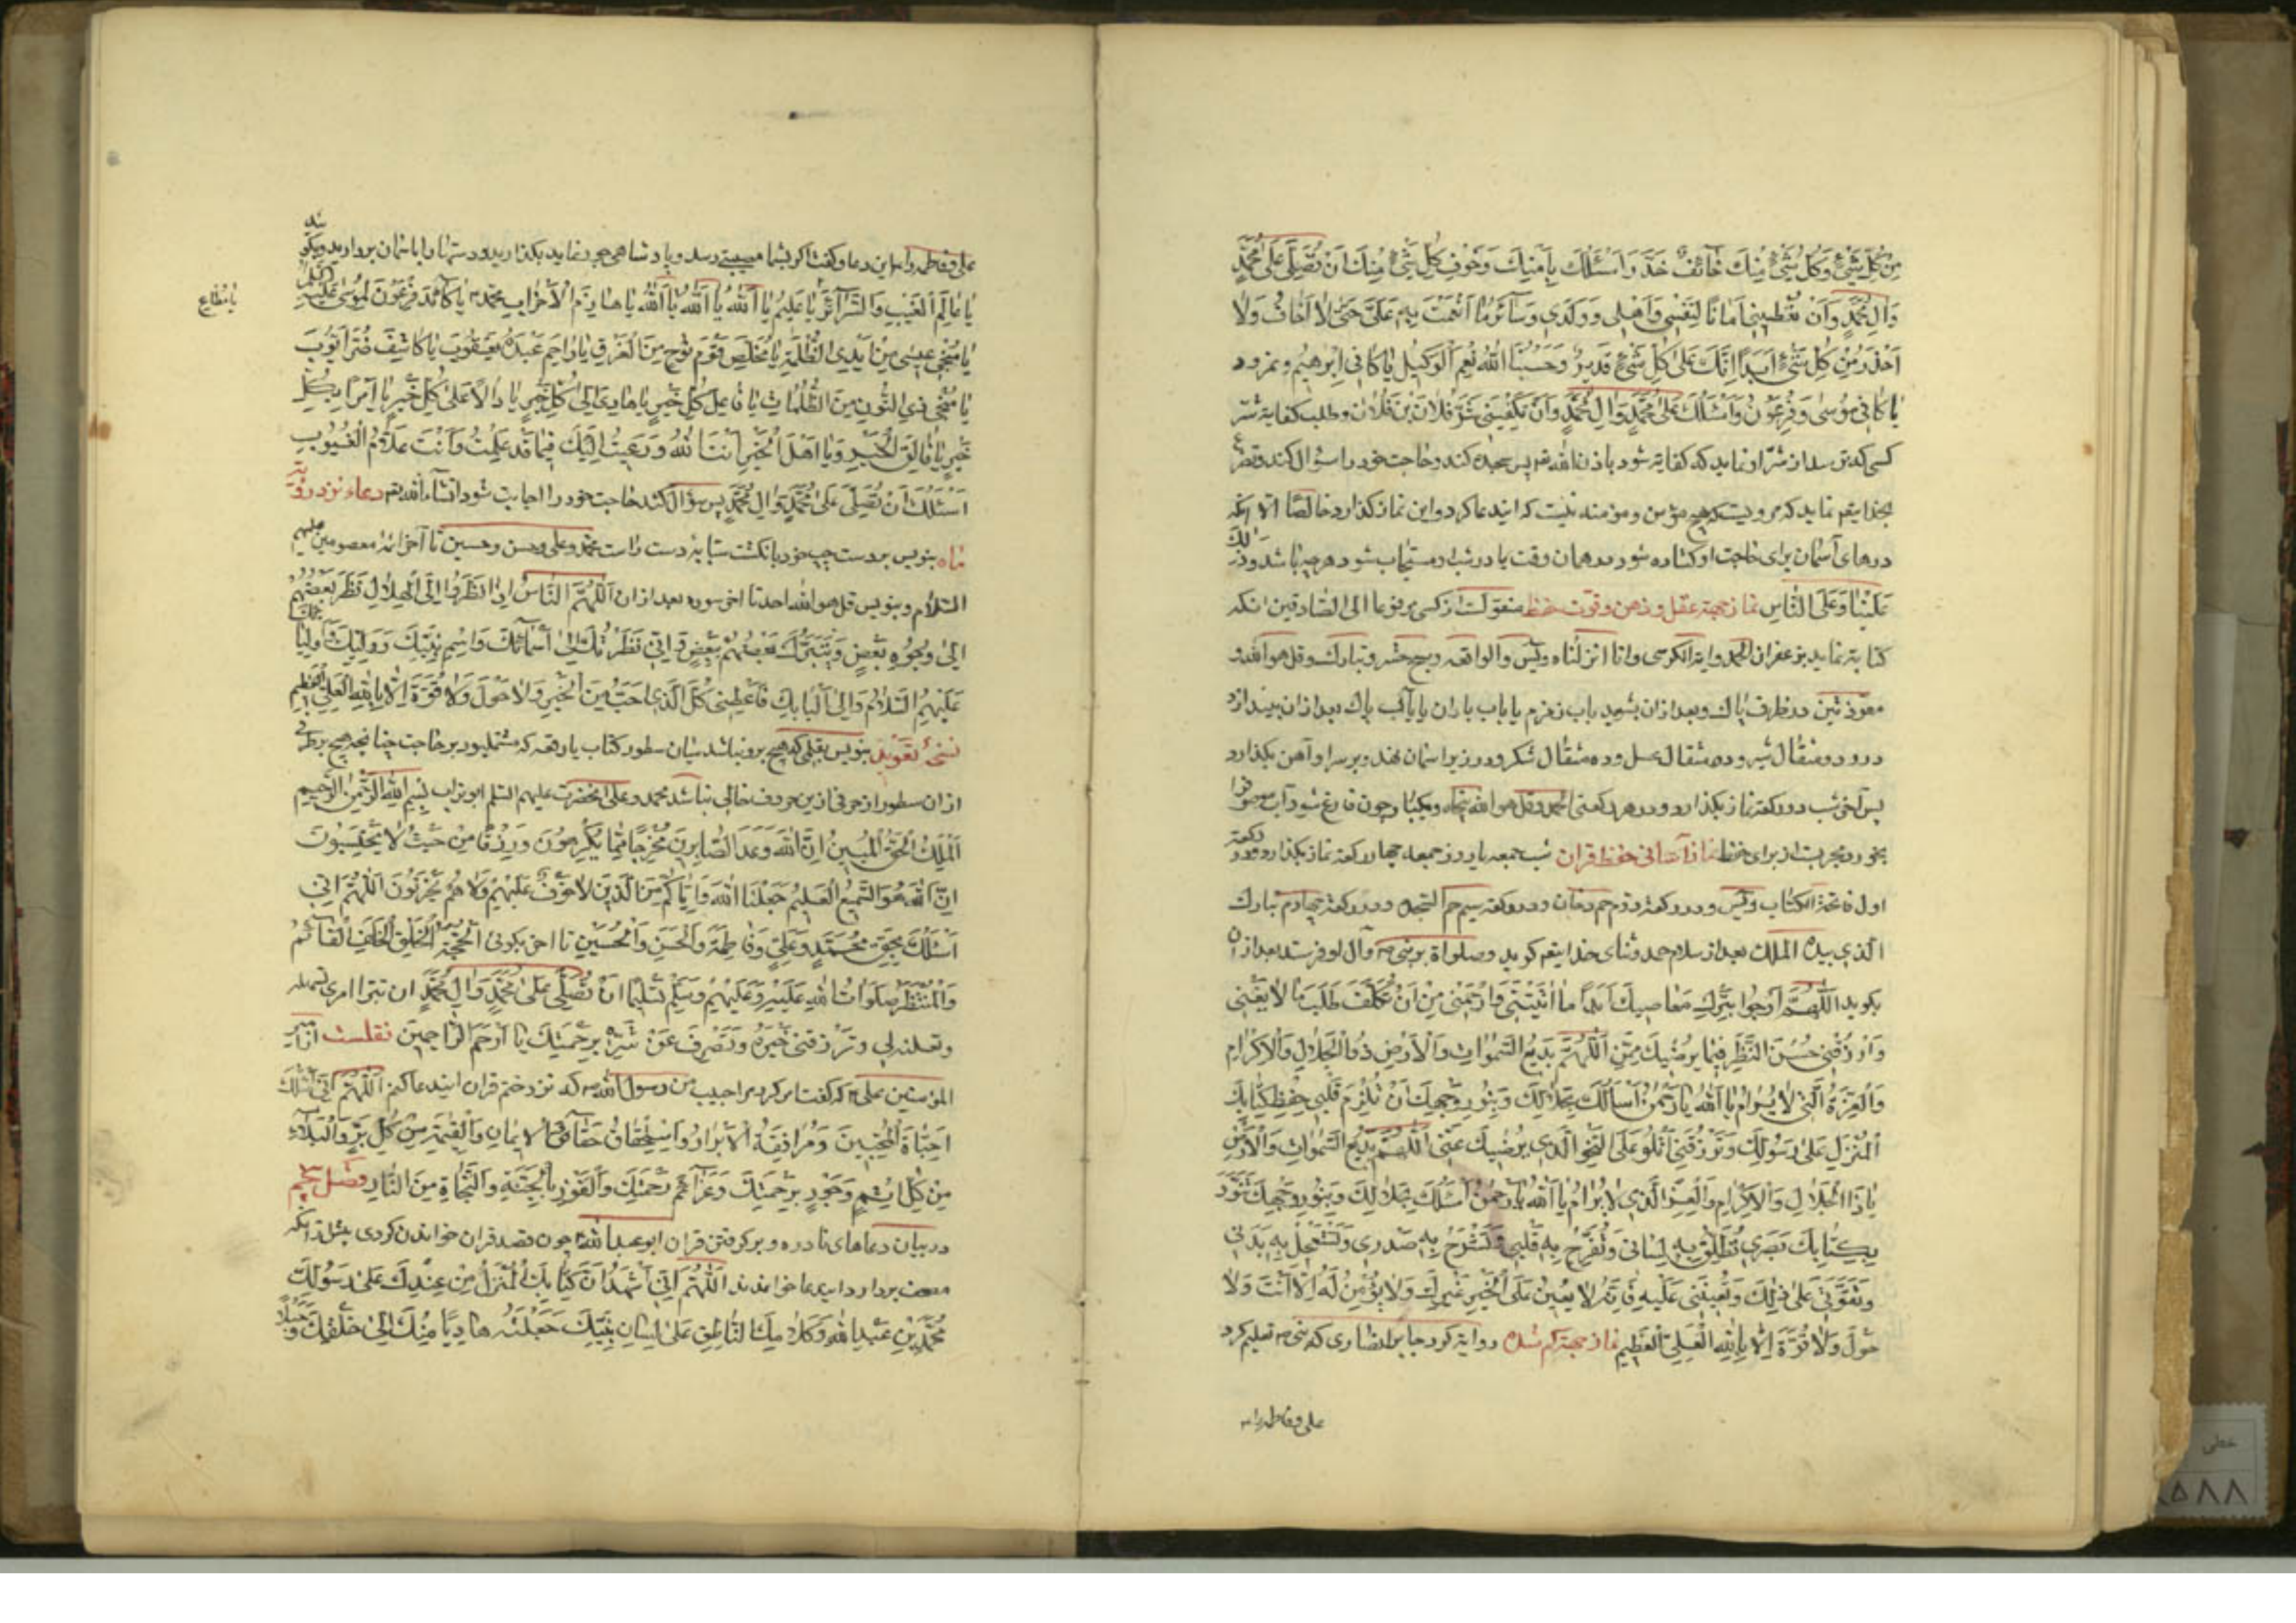 مِن كُلِّ شَيْءٍ وَكُلُّ شَيْءٍ مِنكَ خَائِفٌ حَذَرَ وَاَسْئَلُكَ بِاَمنِكَ وَخَوْفِ كُلِّ شَيْءٍ مِنكَ اَن تُصَلِّىَ عَلى مُحَمَّدٍ
وَالِ مُحَمَّدٍ وَاَن تُعْطِيَنِى اَمَانًا لِنَفْسِى وَاَهْلِى وَوَلَدِى وَسَائِرِ مَا اَنْعَمْتَ بِهِ عَلَىَّ حَتّى لا اَخَافَ وَلا
اَحْذَرَ مِنْ كُلِّ شَيْءٍ اَبَدًا اِنَّكَ عَلى كُلِّ شَيْءٍ قَدِيرٌ وَحَسْبُنَا اللهُ نِعْمَ الْوَكِيلُ يَا كَافِى اِبْرهِيمَ ونمرود
يَا كَافِىَ مُوسى وَفِرْعَوْنَ وَاَسْئَلُكَ عَلى مُحَمَّدٍ وَالِ مُحَمَّدٍ وَاَنْ تَكْفِيَنِى شَرَّ فُلانِ بْنِ فُلان وطلب كفايه شر
كسى كه ترسد از شر او نمايد كه كفايه شود باذن الله تعم پس سجده كند وحاجت خود را سئوال كند
بخدايتعم نمايد كه مرويست كه هيچ مؤمن ومؤمنه نيست كه ايندعا كرد واين نماز گذارد خالصًا الا آنكه
درهاى آسمان براى حاجت او گشاده شود در همان وقت يا در شب او مستجاب شود هرچه باشد وذلك
عَلَيْنَا وَعَلَى النَّاسِ نماز جهة عقل وذهن وقوّت حفظ منقولست از كسى مرفوعا الى الصادقين انكه
كتابة نمايد بزعفران الحمد واية الكرسى وانا انزلناه ويس والواقعه وسبح وحشر وتبارك وقل هو الله و
معوّذتين در ظرف پاك وبعد از ان بشويد باب زمزم يا باب باران يا باب پاك بعد از ان بيندازد
درو دو مثقال شير وده مثقال عسل وده مثقال شكر ودر زير اسمان نهد وبر سر او آهن بگذارد
پس آخر شب دو ركعة نماز بگذارد ودر هر ركعتى الحمد وقل هو الله پنجاه ويكبار وچون فارغ شود آب
بخورد مجربست از براى حفظ نماز آسانى حفظ قران شب جمعه يا روز جمعه چهار ركعة نماز بگذارد در ركعة
اول فاتحة الكتاب ويس ودر ركعة دوم حم دخان ودر ركعة سيم حم السجده ودر ركعة چهارم تبارك
الّذى بيده الملك بعد از سلام حمد وثناى خدايتعم گويد وصلواة بر نبى ص وآل او فرستد بعد از ان
بگويد اَللّهُمَّ ارْحَمْنِى بِتَرْكِ مَعَاصِيكَ اَبَدًا مَا اَبْقَيْتَنِى وَارْحَمْنِى مِنْ اَنْ اَتَكَلَّفَ طَلَبَ مَا لا يَعْنِينِى
وَارْزُقْنِى حُسْنَ النَّظَرِ فِيمَا يُرْضِيكَ مِنِّى اَللّهُمَّ بَدِيعَ السَّموَاتِ وَالْاَرْضِ ذُو الْجَلالِ وَالْاِكْرَامِ
وَالْعِزَّةِ الَّتِى لا يُرَامُ يَا اَللهُ يَا رَحْمنُ اَسْأَلُكَ بِجَلالِكَ وَبِنُورِ وَجْهِكَ اَنْ تُلْزِمَ قَلْبِى حِفْظَ كِتَابِكَ
الْمُنْزَلِ عَلى رَسُولِكَ وَتَرْزُقَنِى اَتْلُوهُ عَلَى النَّحْوِ الَّذِى يُرْضِيكَ عَنِّى اَللّهُمَّ بَدِيعَ السَّموَاتِ وَالْاَرْضِ
يَا ذَا الْجَلالِ وَالْاِكْرَامِ وَالْعِزِّ الَّذِى لا يُرَامُ يَا اَللهُ يَا رَحْمنُ اَسْئَلُكَ بِجَلالِكَ وَبِنُورِ وَجْهِكَ تُنَوِّرَ
بِكِتَابِكَ بَصَرِى تُطْلِقَ بِهِ لِسَانِى وَتُفَرِّحَ بِهِ قَلْبِى وَتَشْرَحَ بِهِ صَدْرِى وَتَسْتَعْمِلَ بِهِ بَدَنِى
وَتُقَوِّيَنِى عَلى ذلِكَ وَتُعِينَنِى عَلَيْهِ فَاِنَّهُ لا يُعِينُ عَلَى الْخَيْرِ غَيْرُكَ وَلا يُؤْمِنُ لَهُ اِلّا اَنْتَ وَلا
حَوْلَ وَلا قُوَّةَ اِلّا بِاللهِ الْعَلِىِّ الْعَظِيمِ نماز جهة گم شده رواية كرد جابر انصارى كه نبى ص تعليم كرد
على وفاطمه را
على وفاطمه را اين دعا وگفت اگر بشما مصيبتى رسد ويا پادشاهى جور نمايد بگذاريد ودستها را باسمان برداريد وبگوييد
يَا عَالِمَ الْغَيْبِ وَالسَّرَائِرِ يَا عَلِيمُ يَا اَللهُ يَا اَللهُ يَا اَللهُ يَا هَازِمَ الْاَحْزَابِ لِمُحَمَّدٍ يَا كَائِدَ فِرْعَوْنَ لِمُوسى
يا مطاع
يَا مُنْجِىَ عِيسى مِنْ اَيْدِى الظَّلَمَةِ يَا مُخَلِّصَ قَوْمِ نُوحٍ مِنَ الْغَرَقِ يَا رَاحِمَ عَبْدِهِ يَعْقُوبَ يَا كَاشِفَ ضُرِّ اَيُّوبَ
يَا مُنْجِىَ ذِى النُّونِ مِنَ الظُّلُمَاتِ يَا فَاعِلَ كُلِّ خَيْرٍ يَا هَادِىَ اِلى كُلِّ خَيْرٍ يَا دَالًّا عَلى كُلِّ خَيْرٍ يَا آمِرًا بِكُلِّ
خَيْرٍ يَا خَالِقَ الْخَيْرِ وَيَا اَهْلَ الْخَيْرِ اَنْتَ اللهُ وَرَغِبْتُ اِلَيْكَ فِيمَا قَدْ عَلِمْتَ وَاَنْتَ عَلّامُ الْغُيُوبِ
اَسْئَلُكَ اَنْ تُصَلِّىَ عَلى مُحَمَّدٍ وَالِ مُحَمَّدٍ پس سؤال كند حاجت خود را اجابت شود انشاء الله تعم دعاء نزد رؤية
ماه بنويس بر دست چپ خود بانگشت سبّابه دست راست محمد وعلى وحسن وحسين تا آخر ائمه معصومين عليهم
السلام وبنويس قل هو الله احد تا اخر سوره بعد از ان اَللّهُمَّ النَّاسُ اِذَا نَظَرُوا اِلَى الْهِلالِ نَظَرَ بَعْضُهُمْ
اِلى وُجُوهِ بَعْضٍ وَتَبَرَّكَ بَعْضُهُمْ بِبَعْضٍ وَاِنِّى نَظَرْتُ اِلى اَسْمَائِكَ وَاسْمِ نَبِيِّكَ وَوَلِيِّكَ وَاَوْلِيَائِكَ
عَلَيْهِمُ السَّلامُ وَاِلى كِتَابِكَ فَاَعْطِنِى كُلَّ الَّذِى اُحِبُّ مِنَ الْخَيْرِ وَلا حَوْلَ وَلا قُوَّةَ اِلّا بِاللهِ الْعَلِىِّ الْعَظِيمِ
نسخهٔ تعويذ بنويس بقلمى كه هيچ برو نباشد ميان سطور كتاب يا رقعه كه مشتمل بود بر حاجت چنانچه هيچ
از ان سطور از حرفى ازين حروف خالى نباشد محمد وعلى عليهم السلم ابو تراب بِسْمِ اللهِ الرَّحْمنِ الرَّحِيمِ
اَلْمَلِكُ الْحَقُّ الْمُبِينُ اِنَّ اللهَ وَعَدَ الصَّابِرِينَ مَخْرَجًا مِمَّا يَكْرَهُونَ وَرِزْقًا مِنْ حَيْثُ لا يَحْتَسِبُونَ
اِنَّ اللهَ هُوَ السَّمِيعُ الْعَلِيمُ جَعَلَنَا اللهُ وَاِيَّاكُمْ مِنَ الَّذِينَ لا خَوْفٌ عَلَيْهِمْ وَلا هُمْ يَحْزَنُونَ اَللّهُمَّ اِنِّى
اَسْئَلُكَ بِحَقِّ مُحَمَّدٍ وَعَلِىٍّ وَفَاطِمَةَ وَالْحَسَنِ وَالْحُسَيْنِ تا اخر بگوئى الْحُجَّةِ الْخَلَفِ الْقَائِمِ
وَالْمُنْتَظَرِ صَلَوَاتُ اللهِ عَلَيْهِ وَعَلَيْهِمْ وَسَلَّمَ تَسْلِيمًا اَنْ تُصَلِّىَ عَلى مُحَمَّدٍ وَالِ مُحَمَّدٍ ان
لى وتَرْزُقَنِى خَيْرَهُ وَتَصْرِفَ عَنِّى شَرَّهُ بِرَحْمَتِكَ يَا اَرْحَمَ الرَّاحِمِينَ نقلست از امير
المؤمنين على ع كه گفت امر كرد مرا حبيب من رسول الله ص كه نزد ختم قران ايندعا كنم اَللّهُمَّ اِنِّى اَسْئَلُكَ
اِخْبَاتَ الْمُخْبِتِينَ وَمُرَافَقَةَ الْاَبْرَارِ وَاسْتِحْقَاقَ حَقَائِقِ الْاِيمَانِ وَالْغَنِيمَةَ مِنْ كُلِّ بِرٍّ وَالسَّلامَةَ
مِنْ كُلِّ اِثْمٍ وَوُجُوبَ رَحْمَتِكَ وَعَزَائِمَ رَحْمَتِكَ وَالْفَوْزَ بِالْجَنَّةِ وَالنَّجَاةَ مِنَ النَّارِ فصل
در بيان دعاهاى نادره وبرگرفتن قران ابو عبد الله ع چون قصد قران خواندن كردى پيش از آنكه
مصحف بردارد ايندعا خواندند اَللّهُمَّ اِنِّى اَشْهَدُ اَنَّ كِتَابَكَ الْمُنْزَلُ مِنْ عِنْدِكَ عَلى رَسُولِكَ
مُحَمَّدِ بْنِ عَبْدِ اللهِ وَكَلامُكَ النَّاطِقُ عَلى لِسَانِ نَبِيِّكَ جَعَلْتَهُ هَادِيًا مِنْكَ اِلى خَلْقِكَ وَحَبْلًا
خطى
٥٨٨